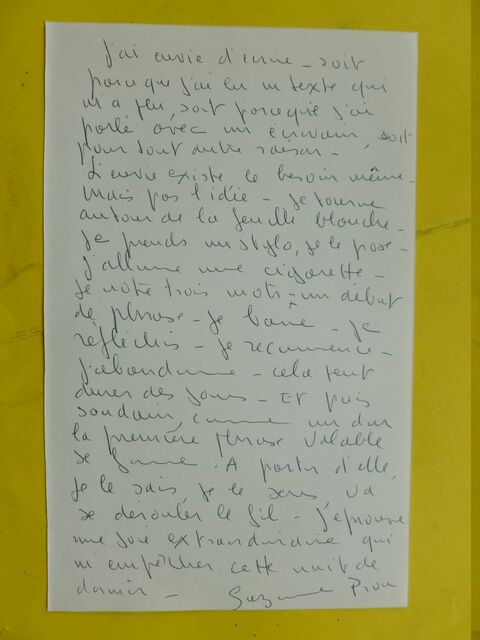 j'ai envie d'écrire - soit
parce que j'ai lu un texte qui
m'a plu, soit parce que j'ai
parlé avec un écrivain, soit
pour tout autre raison -
L'envie existe le besoin même -
Mais pas l'idée - je tourne
autour de la feuille blanche -
Je prends un stylo, je le pose -
j'allume une cigarette -
je note trois mots - un début
de phrase - Je barre - Je
réfléchis - Je recommence -
j'abandonne - cela peut
durer des jours - Et puis
soudain, comme un don
la première phrase valable
se forme. A partir d'elle,
je le sais, je le sens va
se dérouler le fil - J'éprouve
une joie extraordinaire qui
m'empêcher cette nuit de
dormir - Suzanne Prou